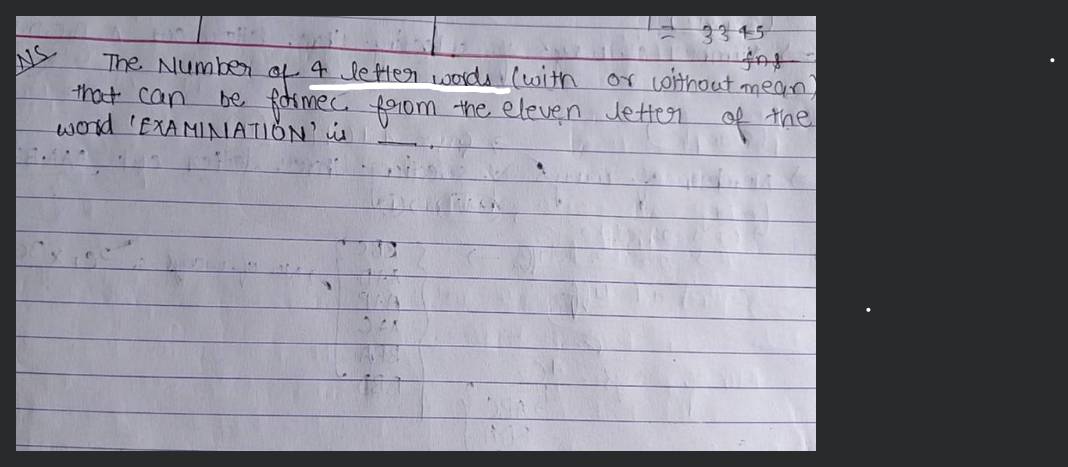 = 3345
Ans
NS The Number of 4 letter words (with or without mean)
that can be formec from the eleven letter of the
word 'EXAMINATION' is __.